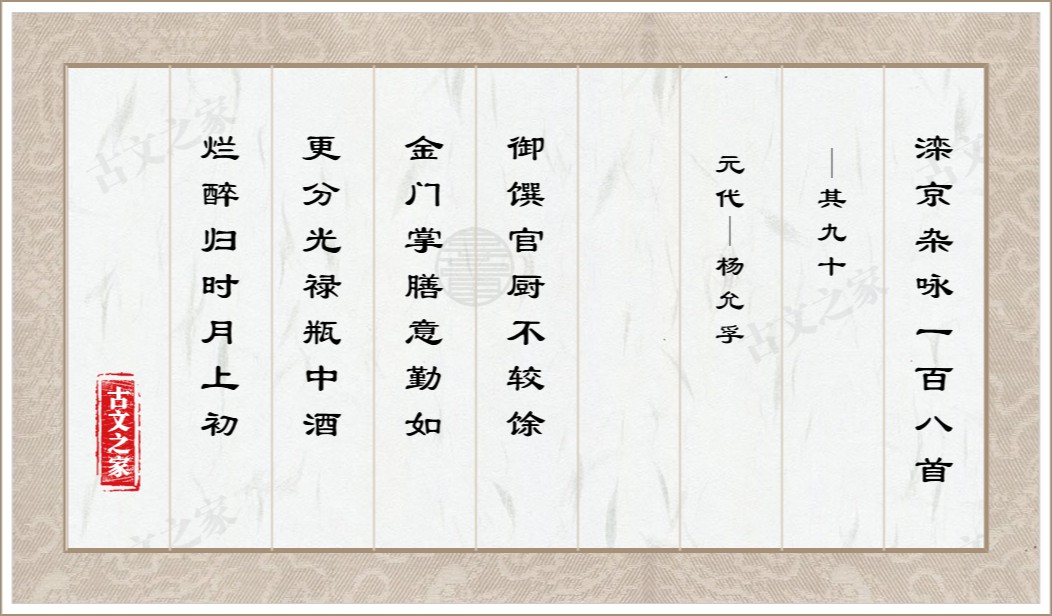 滦京杂咏一百八首
—其九十
元代—杨允孚
御馔官厨不较馀
金门掌膳意勤如
更分光禄瓶中酒
烂醉归时月上初
古文之家
古文之家
古文之家
古文之家